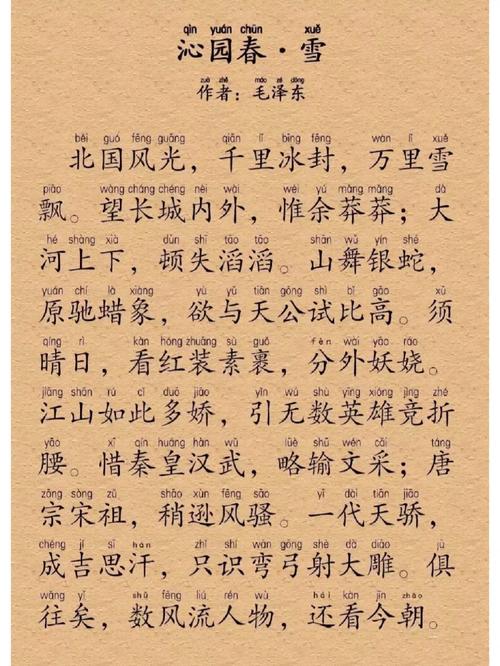 qìn yuán chūn xuě
沁园春·雪
zuò zhě máo zé dōng
作者：毛泽东
běi guó fēng guāng qiān lǐ bīng fēng wàn lǐ xuě
北国风光，千里冰封，万里雪
piāo wàng cháng chéng nèi wài wéi yú mǎng mǎng dà
飘。望长城内外，惟余莽莽；大
hé shàng xià dùn shī tāo tāo shān wǔ yín shé
河上下，顿失滔滔。山舞银蛇，
yuán chí là xiàng yù yǔ tiān gōng shì bǐ gāo xū
原驰蜡象，欲与天公试比高。须
qíng rì kàn hóng zhuāng sù guǒ fèn wài yāo ráo
晴日，看红装素裹，分外妖娆。
jiāng shān rú cǐ duō jiāo yǐn wú shù yīng xióng jìng zhé
江山如此多娇，引无数英雄竞折
yāo xī qín huáng hàn wǔ lüè shū wén cǎi táng
腰。惜秦皇汉武，略输文采；唐
zōng sòng zǔ shāo xùn fēng sāo yí dài tiān jiāo
宗宋祖，稍逊风骚。一代天骄，
chéng jí sī hán zhǐ shí wān gōng shè dà diāo jù
成吉思汗，只识弯弓射大雕。俱
wǎng yǐ shǔ fēng liú rén wù hái kàn jīn zhāo
往矣，数风流人物，还看今朝。